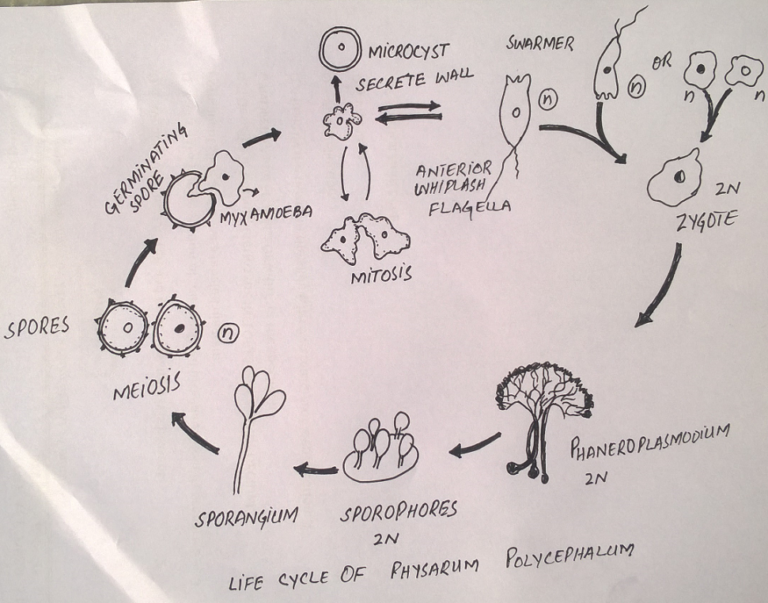 MICROCYST
SECRETE WALL
SWARMER
n
n
OR
n
n
ANTERIOR
WHIPLASH
FLAGELLA
2N
ZYGOTE
GERMINATING
SPORE
MYXAMOEBA
MITOSIS
SPORES
n
MEIOSIS
PHANEROPLASMODIUM
2N
SPORANGIUM
SPOROPHORES
2N
LIFE CYCLE OF PHYSARUM POLYCEPHALUM